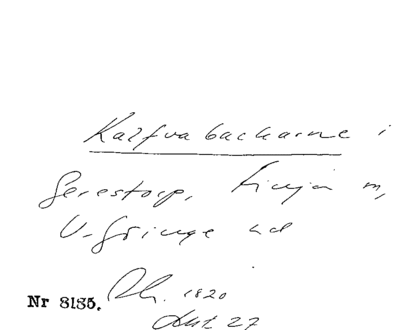 Kalfvabackarne i
Gerestorp, Linja m,
V. Göinge hd
Nr 8135. Dh. 1820
Akt 27